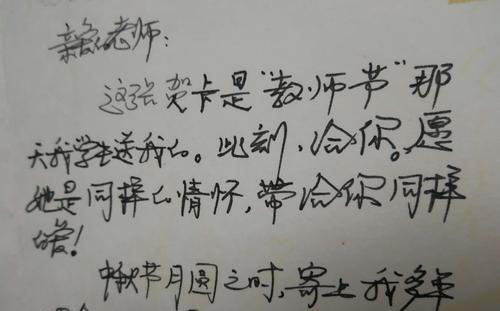 亲爱的老师：
这张贺卡是“教师节”那
天我学生送我的。此刻，给你。愿
她是同样的情怀，带给你同样
的爱！
中秋节月圆之时，寄上我多年